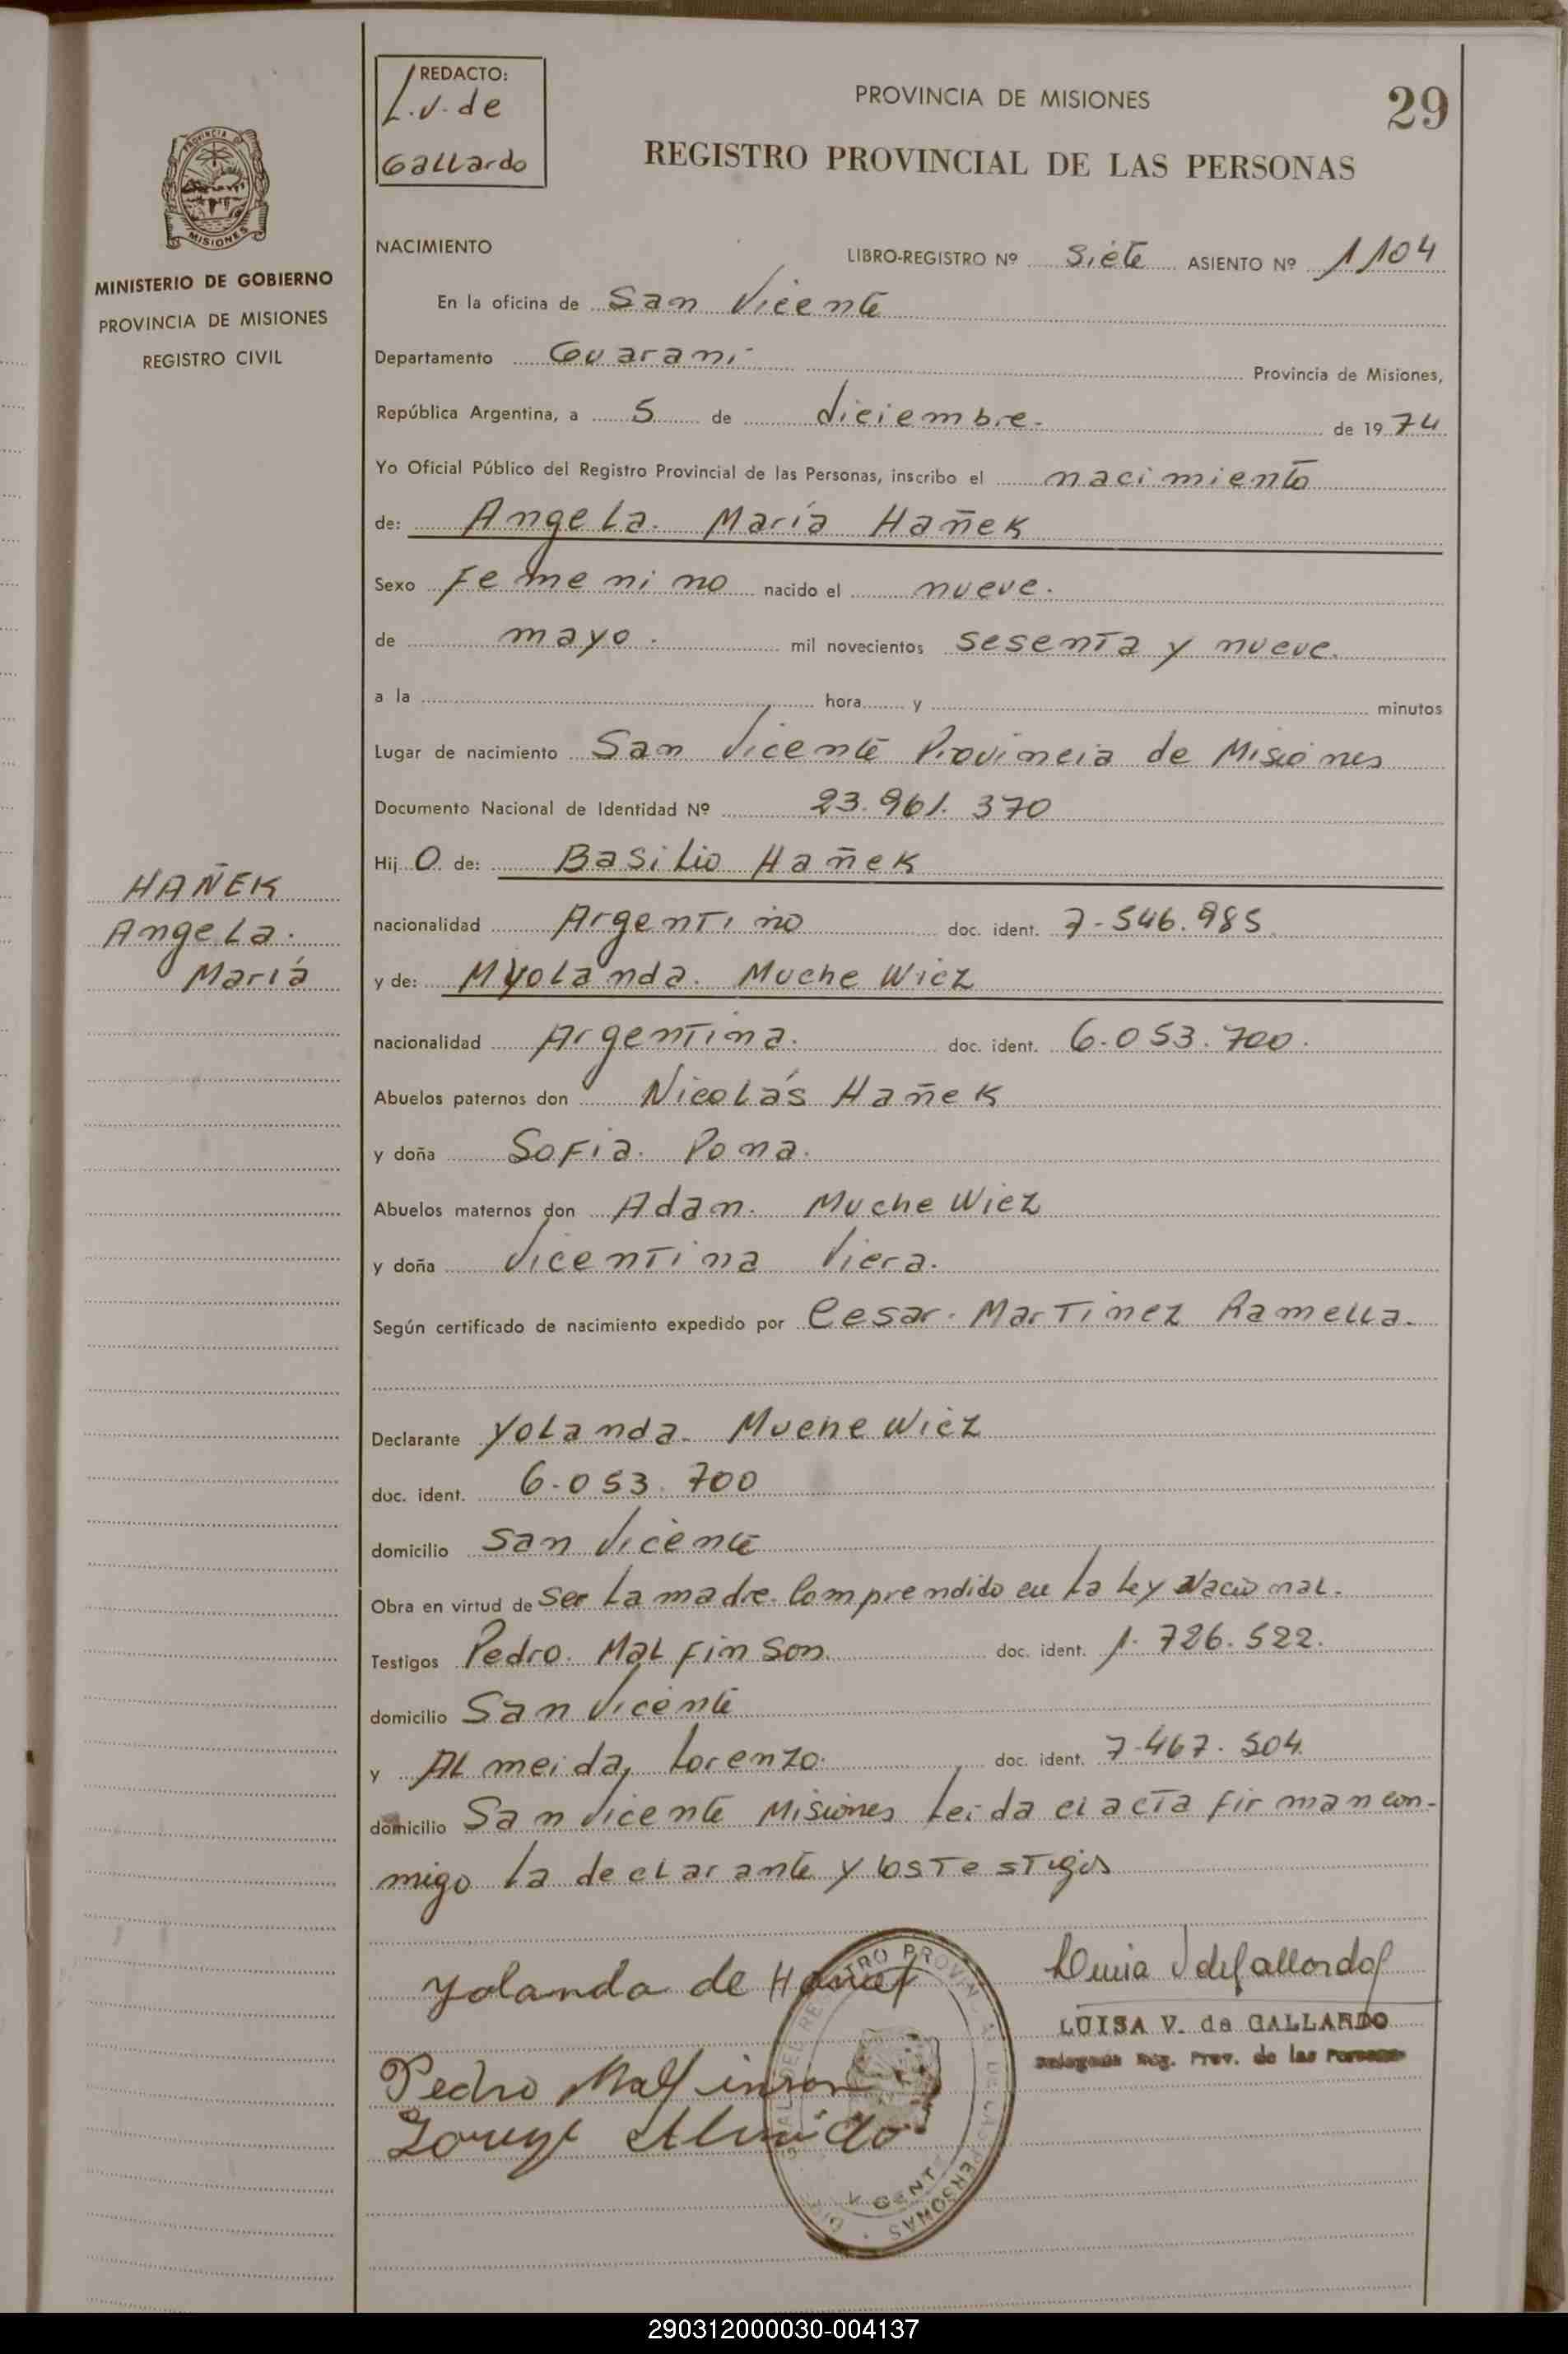 REDACTO:
L.V. de
Gallardo
PROVINCIA DE MISIONES
29
REGISTRO PROVINCIAL DE LAS PERSONAS
MISIONES
MINISTERIO DE GOBIERNO
PROVINCIA DE MISIONES
REGISTRO CIVIL
NACIMIENTO
LIBRO-REGISTRO Nº Siete ASIENTO Nº 1104
En la oficina de San Vicente
Departamento Guaraní Provincia de Misiones,
República Argentina, a 5 de diciembre. de 1974
Yo Oficial Público del Registro Provincial de las Personas, inscribo el nacimiento
de: Angela. María Hañek
Sexo Femenino nacido el nueve.
de mayo. mil novecientos sesenta y nueve.
a la hora y minutos
Lugar de nacimiento San Vicente Provincia de Misiones
Documento Nacional de Identidad Nº 23.961.370
Hij O de: Basilio Hañek
HAÑEK
Angela.
María
nacionalidad Argentino doc. ident. 7-546.985
y de: Myolanda. Muchewicz
nacionalidad Argentina. doc. ident. 6.053.700.
Abuelos paternos don Nicolás Hañek
y doña Sofia. Pona.
Abuelos maternos don Adam. Muchewiez
y doña Vicentina Viera.
Según certificado de nacimiento expedido por Cesar. Martinez Ramella.
Declarante Yolanda. Muchewiez
doc. ident. 6.053.700
domicilio San Vicente
Obra en virtud de ser la madre. Comprendido en la ley Nacional.
Testigos Pedro. Malfinson. doc. ident. 1.726.522.
domicilio San Vicente
y Almeida, Lorenzo. doc. ident. 7.467.504.
domicilio San Vicente Misiones leida el acta firman con-
migo la declarante y los testigos
Yolanda de Hañek
Luisa V de Gallardo
LUISA V. de GALLARDO
Delegada Reg. Prov. de las Personas
Pedro Malfinson
Lorenzo Almeida
290312000030-004137